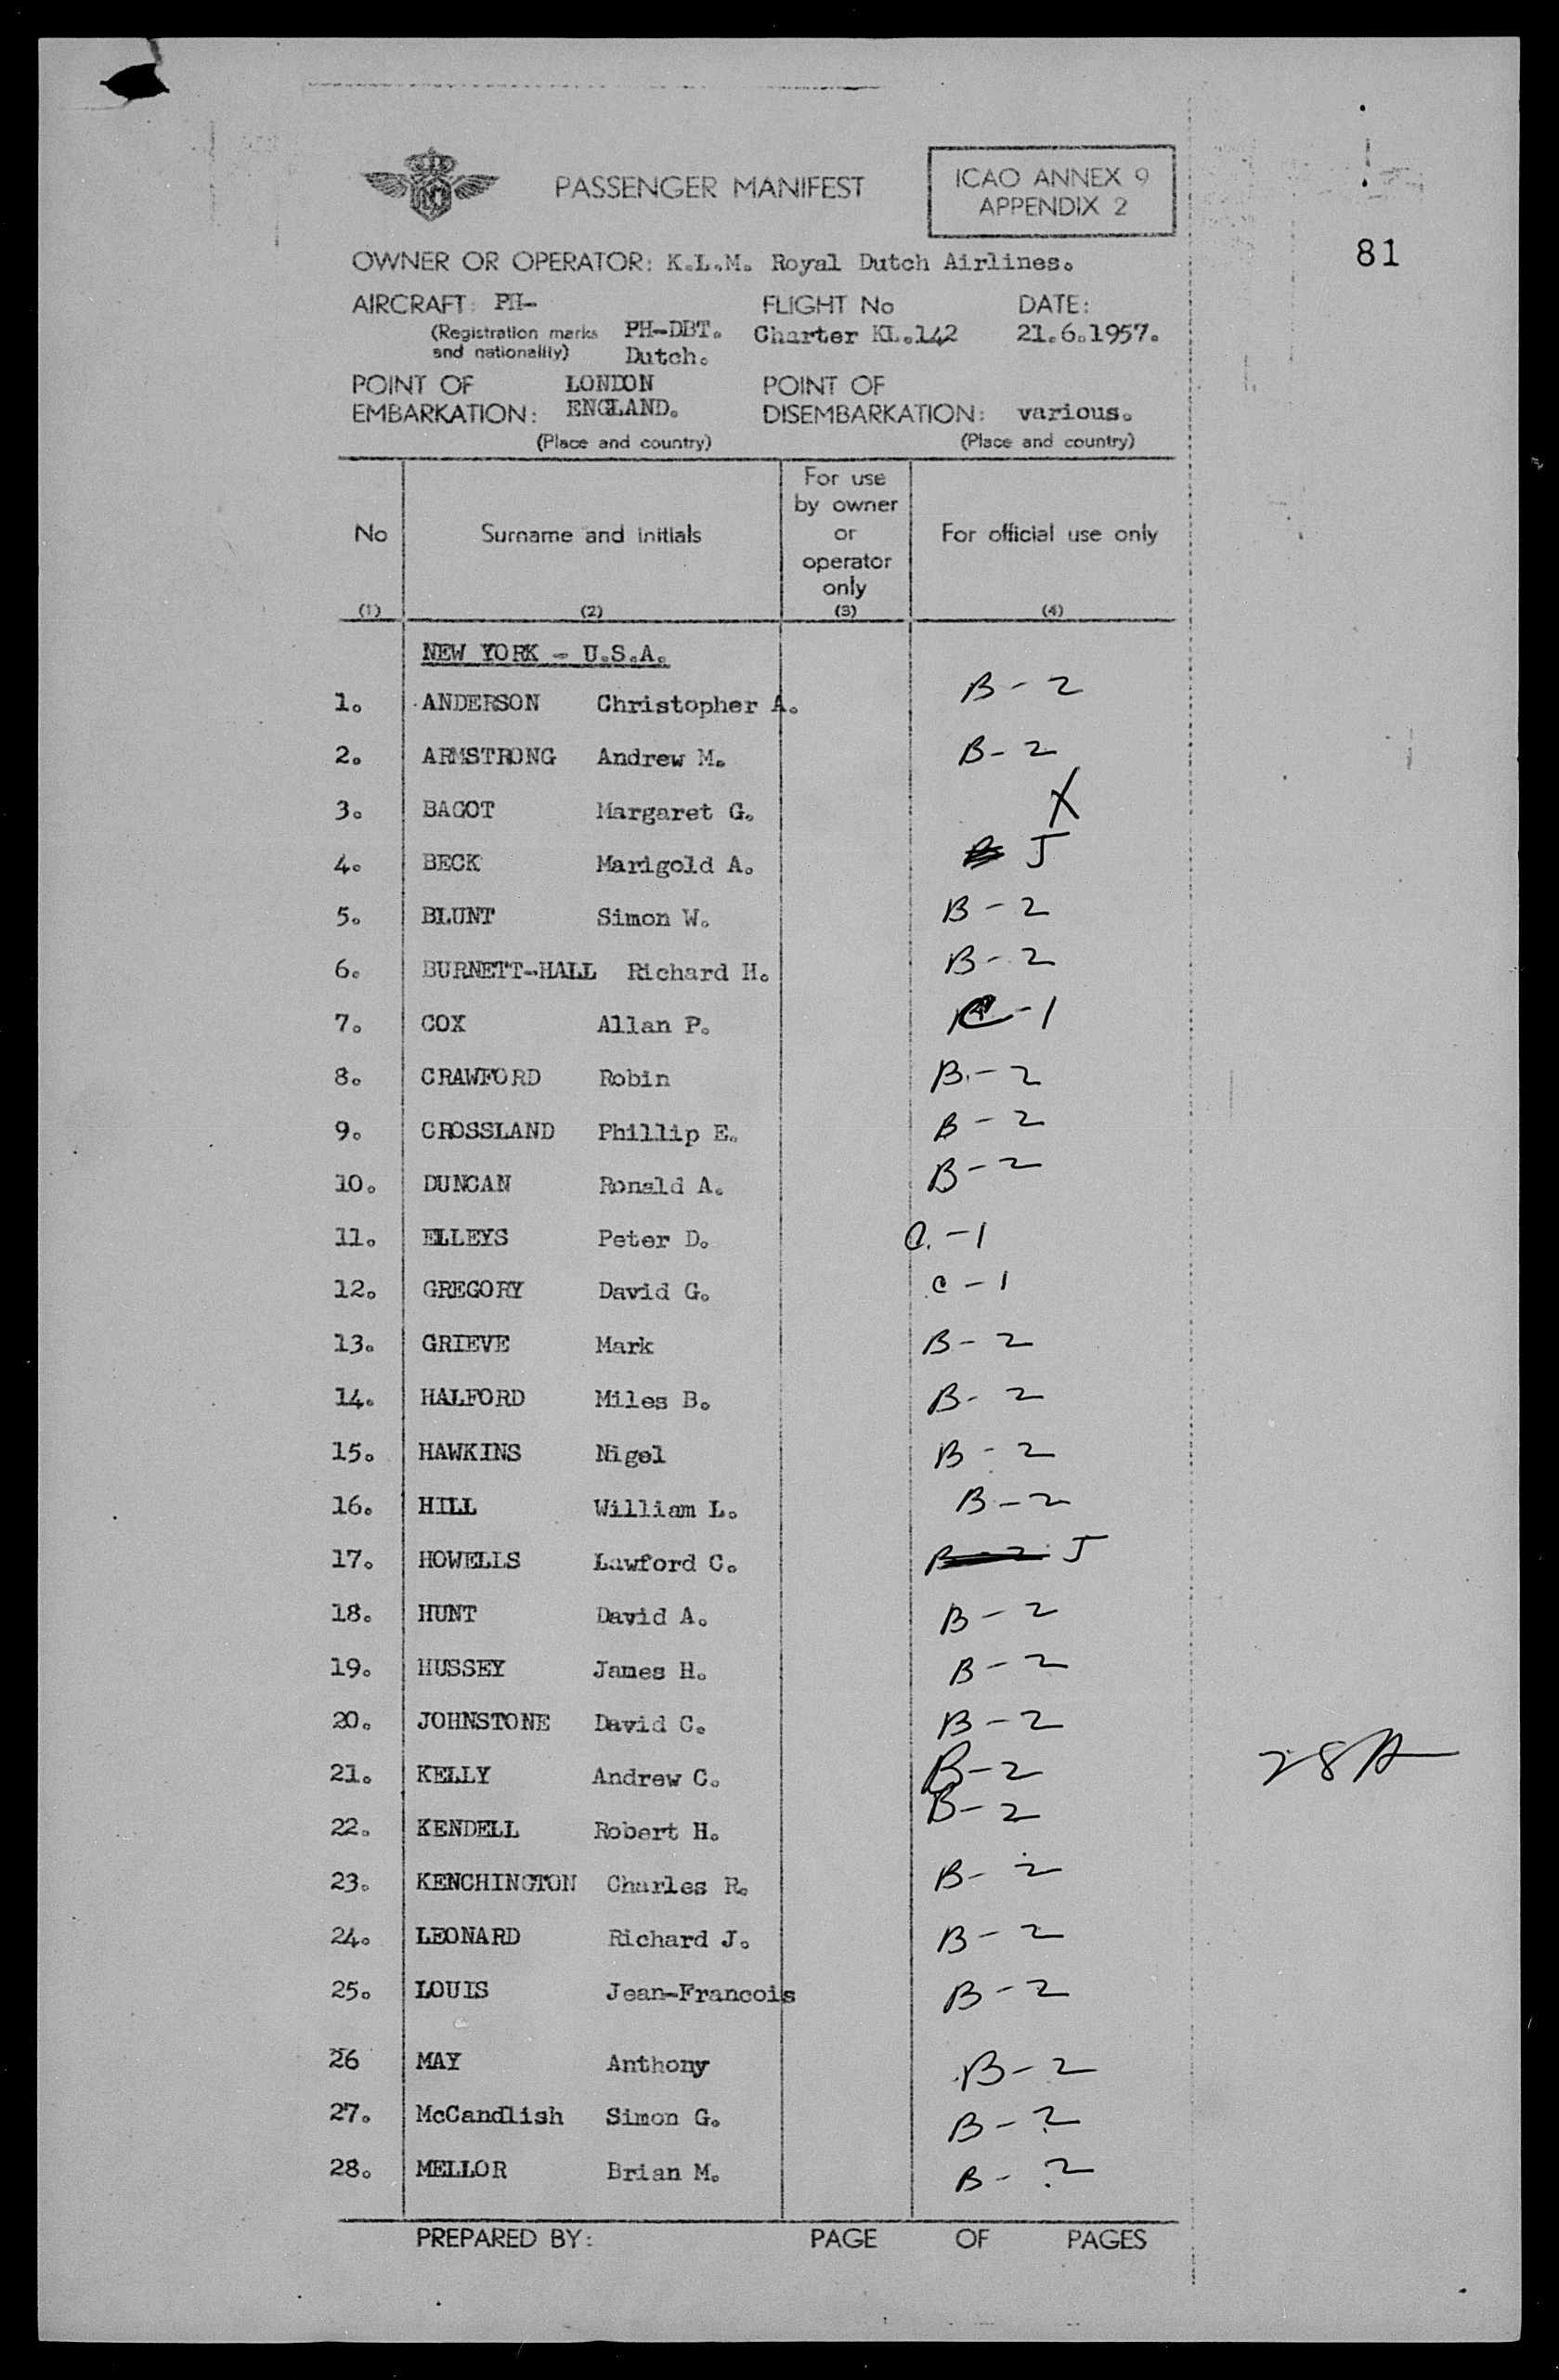 PASSENGER MANIFEST
ICAO ANNEX 9
APPENDIX 2
81
OWNER OR OPERATOR: K.L.M. Royal Dutch Airlines.
AIRCRAFT: PH- FLIGHT No DATE:
(Registration marks PH-DBT. Charter KL.142 21.6.1957.
and nationality) Dutch.
POINT OF LONDON POINT OF
EMBARKATION: ENGLAND. DISEMBARKATION: various.
(Place and country) (Place and country)
For use
by owner
No Surname and initials or For official use only
operator
only
(1) (2) (3) (4)
NEW YORK - U.S.A.
1. ANDERSON Christopher A. B-2
2. ARMSTRONG Andrew M. B-2
3. BAGOT Margaret G. X
4. BECK Marigold A. J
5. BLUNT Simon W. B-2
6. BURNETT-HALL Richard H. B-2
7. COX Allan P. C-1
8. CRAWFORD Robin B-2
9. CROSSLAND Phillip E. B-2
10. DUNCAN Ronald A. B-2
11. ELLEYS Peter D. C-1
12. GREGORY David G. C-1
13. GRIEVE Mark B-2
14. HALFORD Miles B. B-2
15. HAWKINS Nigel B-2
16. HILL William L. B-2
17. HOWELLS Lawford C. B-2 J
18. HUNT David A. B-2
19. HUSSEY James H. B-2
20. JOHNSTONE David C. B-2
21. KELLY Andrew C. B-2
22. KENDELL Robert H. B-2
23. KENCHINGTON Charles R. B-2
24. LEONARD Richard J. B-2
25. LOUIS Jean-Francois B-2
26 MAY Anthony B-2
27. McCandlish Simon G. B-2
28. MELLOR Brian M. B-2
PREPARED BY: PAGE OF PAGES